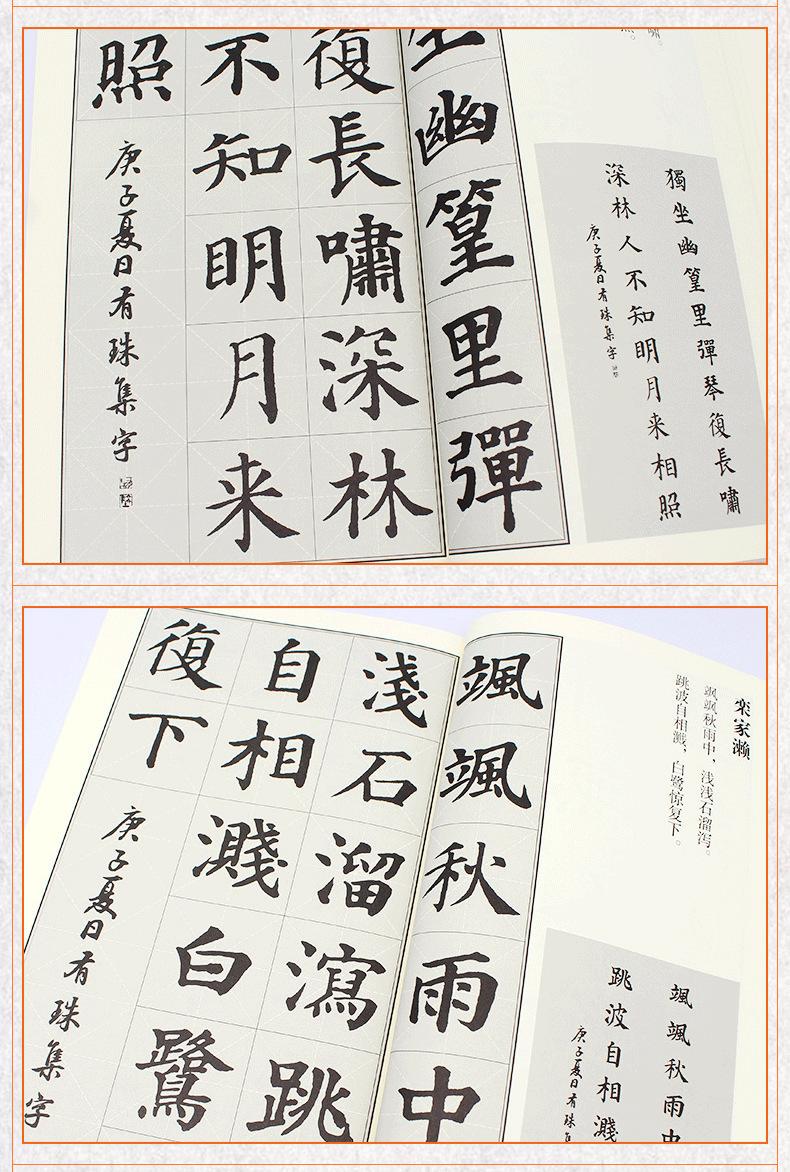 獨坐幽篁里彈琴復長嘯
深林人不知明月来相照
庚子夏日有珠集字
坐幽篁里彈
復長嘯深林
不知明月来
照
庚子夏日有珠集字
栾家濑
飒飒秋雨中，浅浅石溜泻。
跳波自相溅，白鹭惊复下。
颯颯秋雨中
跳波自相濺
庚子夏日有珠
颯颯秋雨中
淺石溜瀉跳
自相濺白鷺
復下
庚子夏日有珠集字